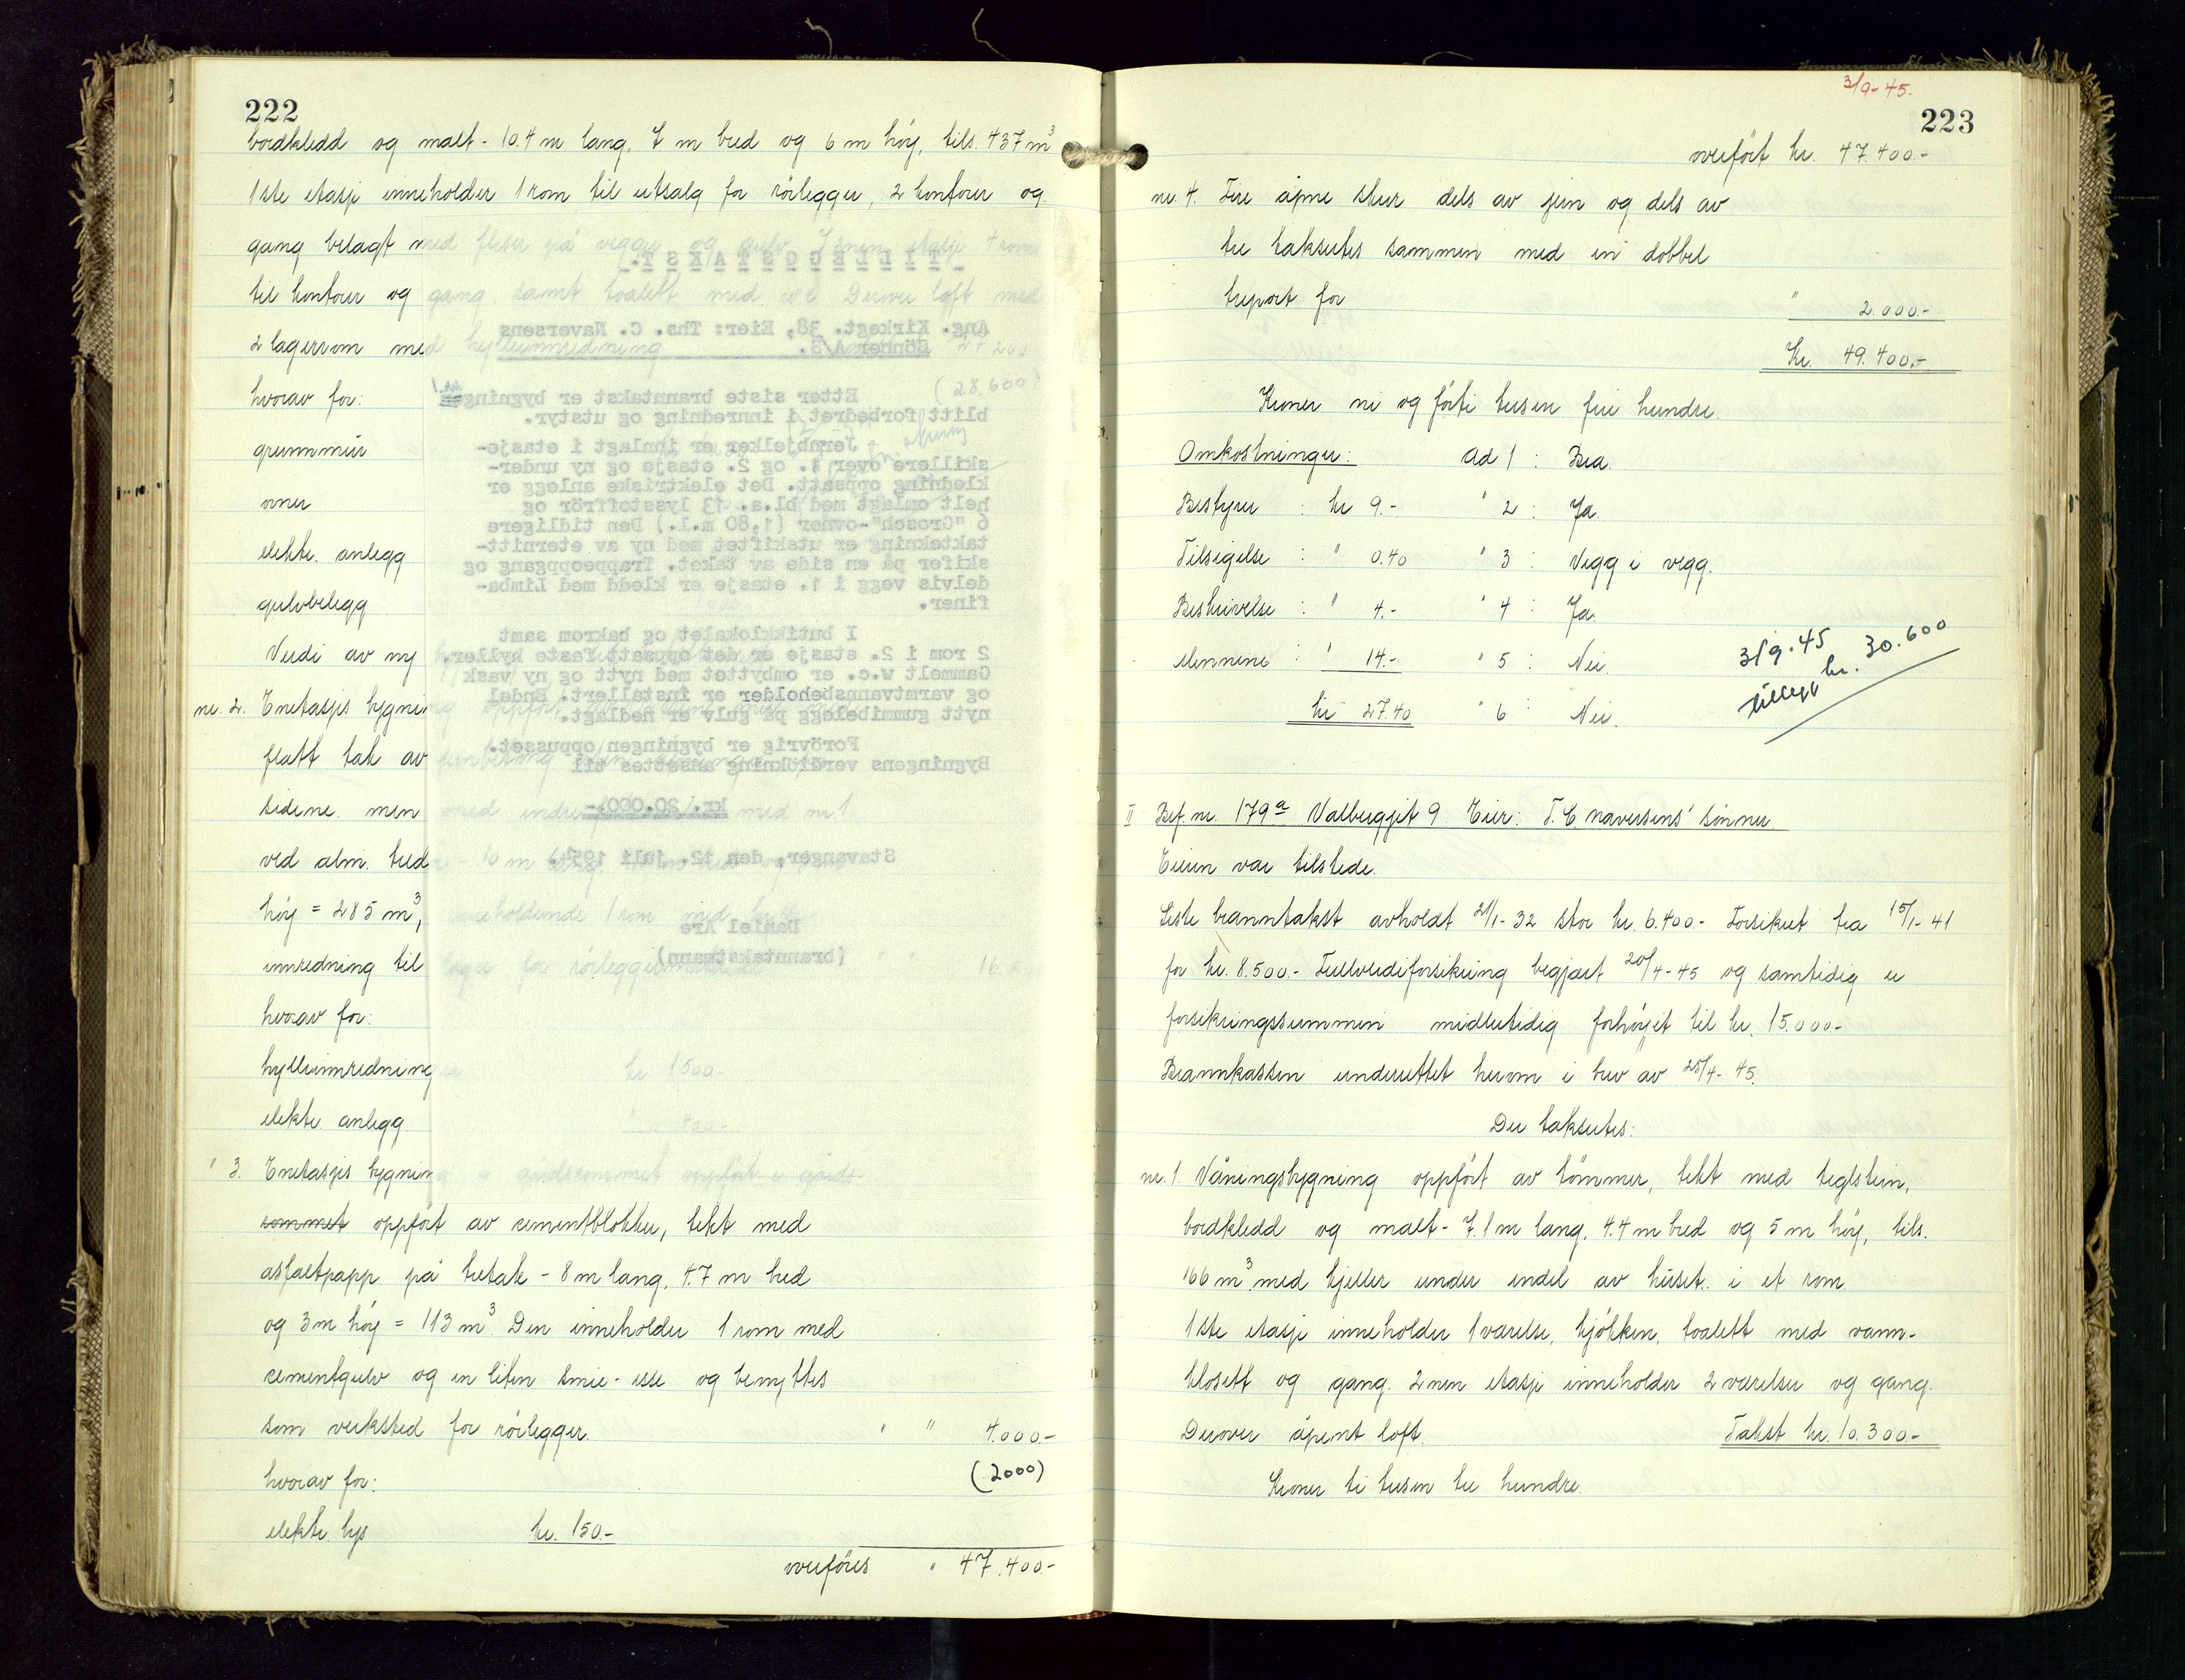 222
bordkledd og malt - 10.4 m lang, 7 m bred og 6 m höy, tils. 437 m³
1ste etasje inneholder 1 rom til utsalg for rörlegger, 2 kontorer og
gang belagt med fliser på vegger og gulv. 2nen etasje 4 rom
til kontorer og gang samt toalett med wc Derover loft med
2 lagerrom med hylleinnredning 27.200
hvorav for: (28.600)
grunnmur
ovner
elektr. anlegg
gulvbelegg
Verdi av ny
nr. 2. Enetasjes bygning
flatt tak av jernbetong
sidene men med
med nr 1
ved alm. bred - 10 m
höy = 285 m³, inneholdende 1 rom med
innredning til lager for rörlegger 16.
hvorav for:
hylleinnredning kr 1500.-
elektr. anlegg " 400.-
" 3. Enetasjes bygning i gårdsrommet oppfört i gårds-
rommet oppfört av cementblokker, tekt med
asfaltpapp på tretak - 8 m lang, 4.7 m bred
og 3 m höy = 113 m³. Den inneholder 1 rom med
cementgulv og en liten smie-esse og benyttes
som verksted for rörlegger. " " 4.000.-
hvorav for: (2000)
elektr. lys kr. 150.-
overföres " 47.400.-
TILLEGGSTAKST.
Ang. Kirkegt. 38, Eier: Ths. C. Naversens
Sönner A/S.
Etter siste branntakst er bygningen
blitt forbedret i innredning og utstyr.
Jernbjelker er innlagt i etasje-
skillere over 1. og 2. etasje og ny under-
kledning oppsatt. Det elektriske anlegg er
helt omlagt med bl.a. 13 lysstoffrör og
6 "Grosch"-ovner (1,80 m.l.) Den tidligere
taktekning er utskiftet med ny av eternitt-
skifer på en side av taket. Trappeoppgang og
delvis vegg i 1. etasje er kledd med Limba-
finer.
I butikklokalet og bakrom samt
2 rom i 2. etasje er det oppsatt faste hyller.
Gammelt w.c. er ombyttet med nytt og ny vask
og varmtvannsbeholder er installert. Endel
nytt gummibelegg på gulv er nedlagt.
Forövrig er bygningen oppusset.
Bygningens verdiökning ansettes til
kr. 20.000.-
Stavanger, den 12. juli 1954.
Daniel Are
(branntakstmann)
3/9-45.
223
overfört kr. 47.400.-
nr. 4. Fire åpne skur dels av jern og dels av
tre takseres sammen med en dobbel
treport for " 2.000.-
Kr. 49.400,-
Kroner ni og förti tusen fire hundre.
Omkostninger: Ad 1 : Bra.
Bestyrer : kr 9.- " 2 : Ja.
Tilsigelse : " 0.40 " 3 : Vegg i vegg.
Beskrivelse : " 4.- " 4 : Ja.
Mennene : " 14.- " 5 : Nei.
kr 27.40 " 6 : Nei.
3/9.45
tillegg kr. 30.600
II Bef. nr. 179ª Valbergjet 9 Eier: T. C. Naversens' sönner.
Eieren var tilstede.
Siste branntakst avholdt 21/1-32 stor kr. 6.400.- Forsikret fra 15/1-41
for kr. 8.500.- Fullverdiforsikring begjært 20/4-45 og samtidig er
forsikringssummen midlertidig forhöyet til kr. 15.000.-
Brannkassen underrettet herom i brev av 25/4-45.
Der takseres:
nr. 1. Våningsbygning oppfört av tömmer, tekt med teglstein,
bordkledd og malt - 7.1 m lang, 4.4 m bred og 5 m höy, tils.
166 m³. med kjeller under endel av huset. i et rom
1ste etasje inneholder 1 værelse, kjökken, toalett med vann-
klosett og gang. 2nen etasje inneholder 2 værelser og gang.
Derover åpent loft. Takst kr. 10.300.-
Kroner ti tusen tre hundre.